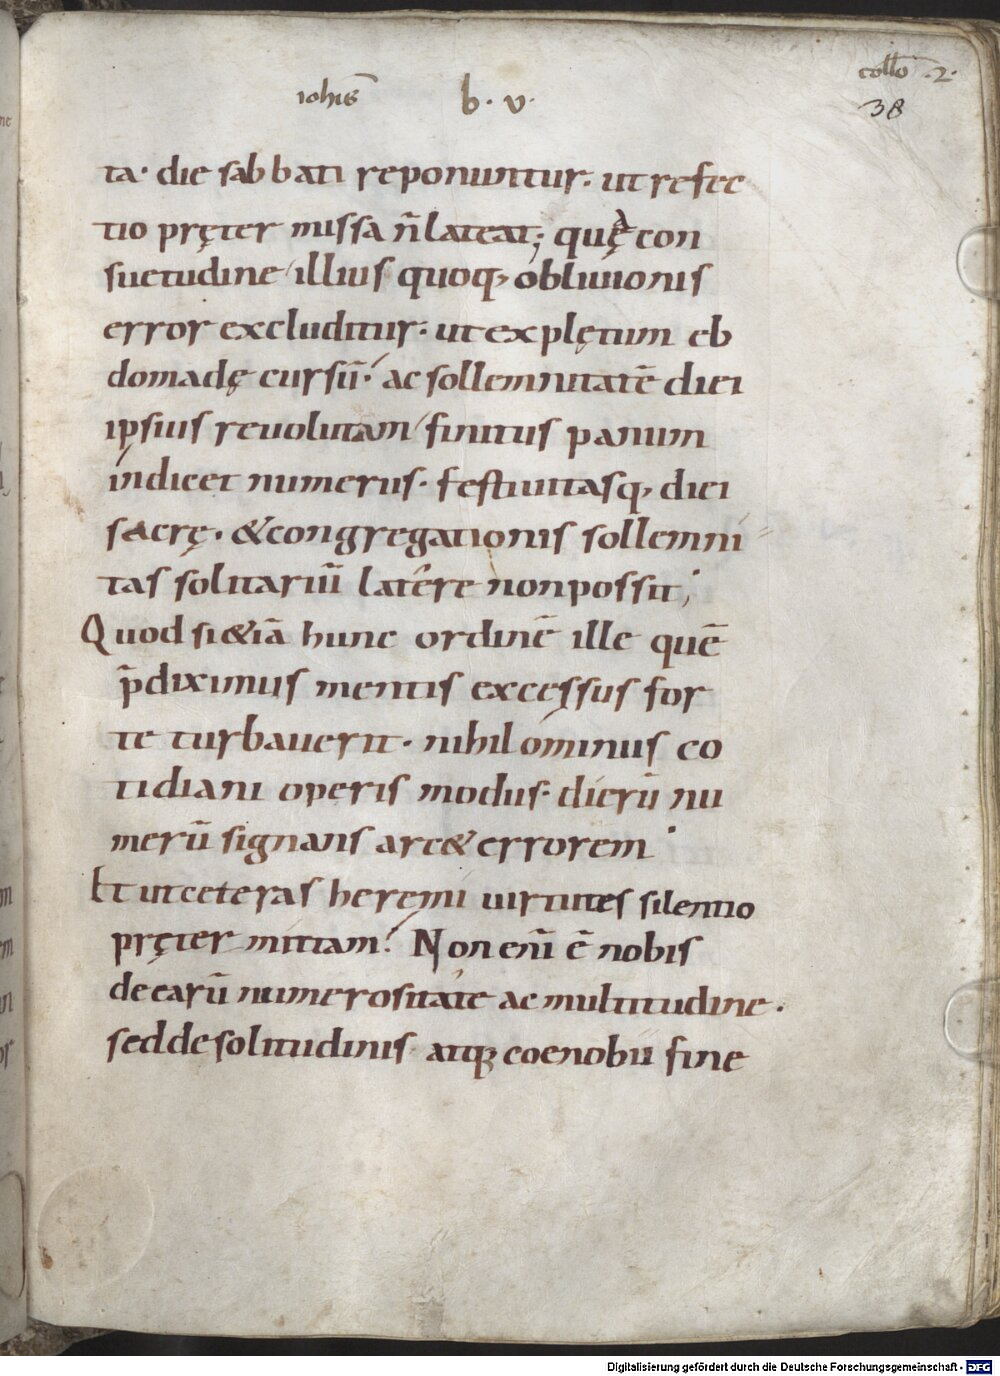 iohis̅ b. v.
coll̅o .2.
38
ta. die sabbati reponuntur. ut refec
tio pręter missa n̅ lateat; quę con
suetudine illius quoq, obliuionis
error excluditur. ut explętum eb
domadę cursū. ac sollemnitatē diei
ipsius reuolutam finitus panum
indicet numerus. festiuitasq, diei
sacrę. & congregationis sollemni
tas solitariū latere non possit;
Quod si &iā hunc ordinē ille quē
p̄diximus mentis excessus for
te turbauerit. nihilominus co
tidiani operis modus. dierū nu
merū signans arc& errorem.
Et ut ceteras heremi uirtutes silentio
pręter mittam. Non enī ē nobis
de earū numerositate ac multitudine.
sed de solitudinis atq; coenobii fine
Digitalisierung gefördert durch die Deutsche Forschungsgemeinschaft - DFG